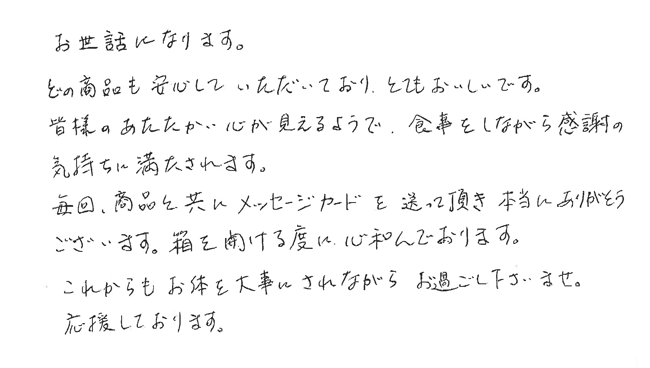 お世話になります。
どの商品も安心していただいており、とてもおいしいです。
皆様のあたたかい心が見えるようで、食事をしながら感謝の
気持ちに満たされます。
毎回、商品と共にメッセージカードを送って頂き本当にありがとう
ございます。箱を開ける度に心和んでおります。
これからもお体を大事にされながらお過ごし下さいませ。
応援しております。